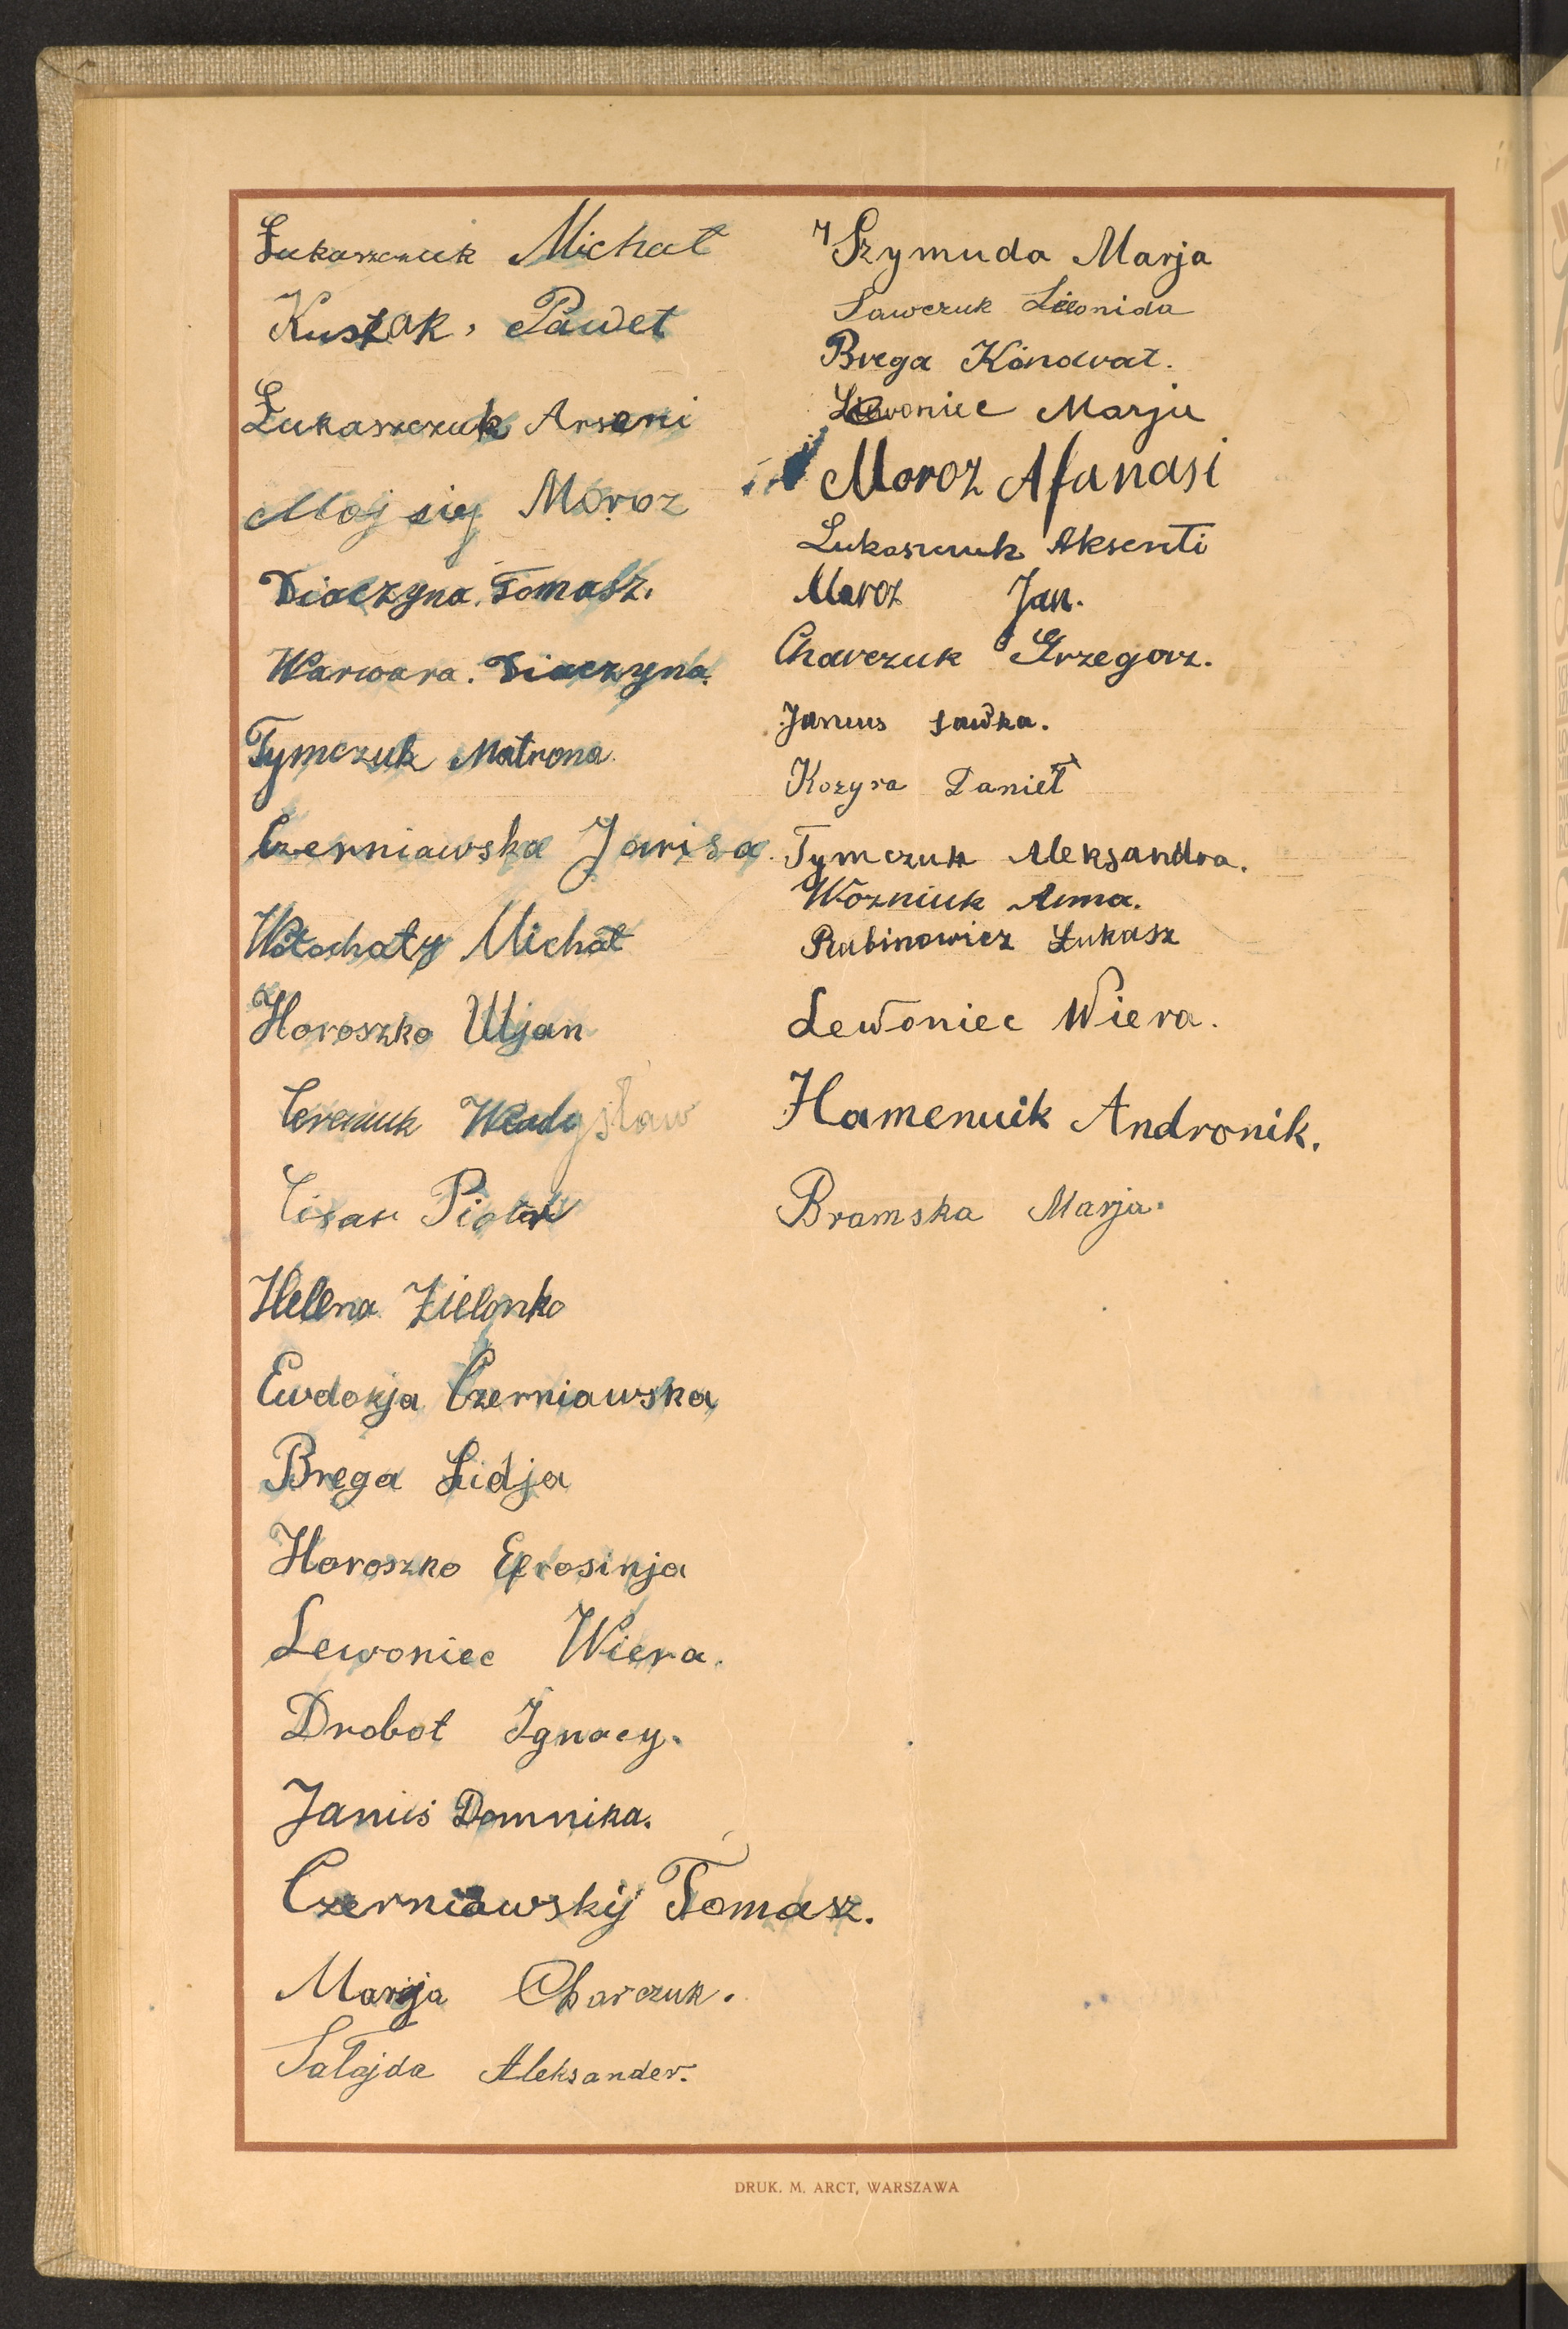 Łukaszczuk Michał
Kuszak, Paweł
Łukaszczuk Arseni
Mojsiej Moroz
Diaczyna. Tomasz.
Warwara. Diaczyna.
Tymczuk Matrona
Czerniawska Jarisa.
Wołochaty Michał
Horoszko Uljan
Władysław
Cisar Piotr
Helena Zielonko
Ewdokja Czerniawska
Brega Lidja
Horoszko Efrosinja
Lewoniec Wiera.
Drobot Ignacy.
Janus Domnika.
Czerniawskij Tomasz.
Marija Charczuk.
Sałajda Aleksander.
Szymuda Marja
Sawczuk Leonida
Brega Kondrat.
Lewoniec Marju
Moroz Afanasi
Lukaszczuk Aksenti
Moroz Jan.
Charczuk Grzegorz.
Janus Sawka.
Kozyra Danieł
Tymczuk Aleksandra.
Wozniuk Anna.
Rabinowicz Łukasz
Lewoniec Wiera.
Hamenuik Andronik.
Bramska Marja.
DRUK. M. ARCT, WARSZAWA